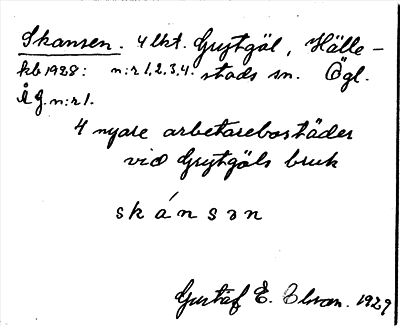 Skansen. 4 lht. Grytgöl, Hälle-
kb 1928: n:r 1,2,3,4. stads sn. Ögl.
åg. n:r 1.
4 nyare arbetarebostäder
vid Grytgöls bruk
skánsən
Gustaf E. 1929